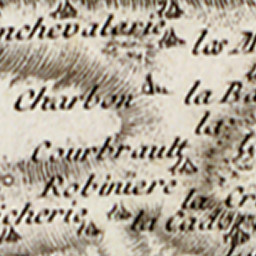 nchevalerie
las M
Charbon
la Ba
la
Courbrault
Robiniere
la Cr
icherie
la Cado